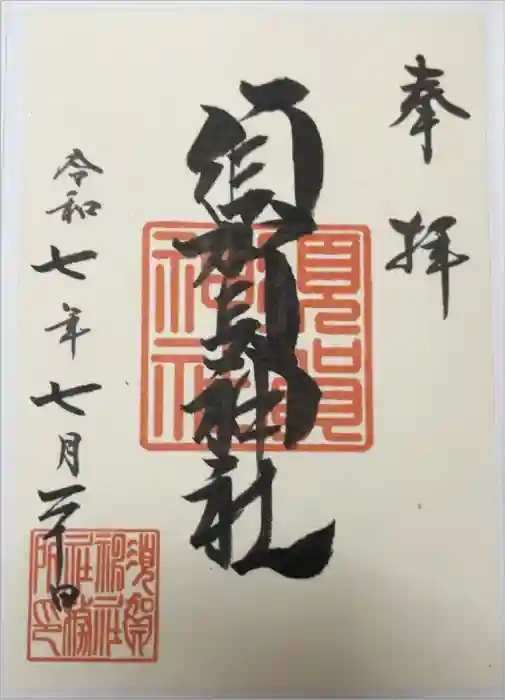 奉拝
須賀神社
須賀
神社
令和七年七月二十日
須賀
神社
社務
所印